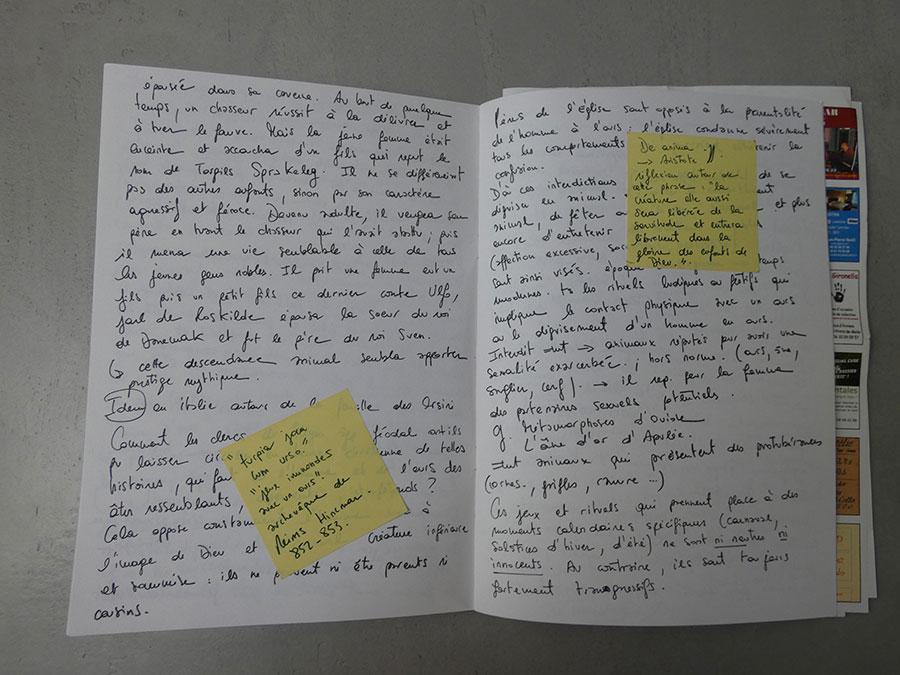 épuisée dans sa caverne. Au bout de quelque
temps, un chasseur réussit à la délivrer et
à tuer le fauve. Mais la jeune femme était
enceinte et accoucha d'un fils qui reçut le
nom de Torgils Sprakeleg. Il ne se différenciait
pas des autres enfants, sinon par son caractère
agressif et féroce. Devenu adulte, il vengea son
père en tuant le chasseur qui l'avait abattu ; puis
il mena une vie semblable à celle de tous
les jeunes gens nobles. Il prit une femme eut un
fils puis un petit fils ce dernier conte Ulfo,
jarl de Roskilde épousa la soeur du roi
de Danemark et fut le père du roi Sven.
↳ cette descendance animal sembla apporter
prestige mythique.
Idem en italie autour de la famille des Orsini
Comment les clercs
féodal ont ils
pu laisser
de telles
histoires, qui
l'ours des
êtres ressemblants,
Cela oppose
à
l'image de Dieu et
créature inférieure
et soumise : ils ne peuvent ni être parents ni
cousins.
"turpia joca
cum urso."
"jeux immondes
avec un ours"
archevêque de
Reims Hincmar.
852-853.
Pères de l'église sont opposés à la parentalité
de l'homme à l'ours : l'église condamne sévèrement
tous les comportements
la
confusion.
D'à ces interdictions
de se
déguiser en animal.
animal, de fêter
et plus
encore d'entretenir
(affection excessive,
sont ainsi visés. époque
temps
modernes. ts les rituels ludiques ou festifs qui
implique le contact physique avec un ours
ou le déguisement d'un homme en ours.
Interdit → animaux réputés pur avoir une
sexualité exacerbée ; hors norme. (ours, âne,
sanglier, cerf). → il rep. pour la femme
des partenaires sexuels potentiels.
cf. Métamorphoses d'Ovide
L'âne d'or d'Apulée.
animaux qui présentent des protubérances
(cornes, griffes, ...)
Ces jeux et rituels qui prennent place à des
moments calendaires spécifiques (carnaval,
solstices d'hiver, d'été) ne sont ni neutres ni
innocents. Au contraire, ils sont toujours
fortement transgressifs.
De anima.
→ Aristote
réflexion autour de
cette phrase : "la
créature elle aussi
sera libérée de la
servitude et entrera
librement dans la
gloire des enfants de
Dieu.".